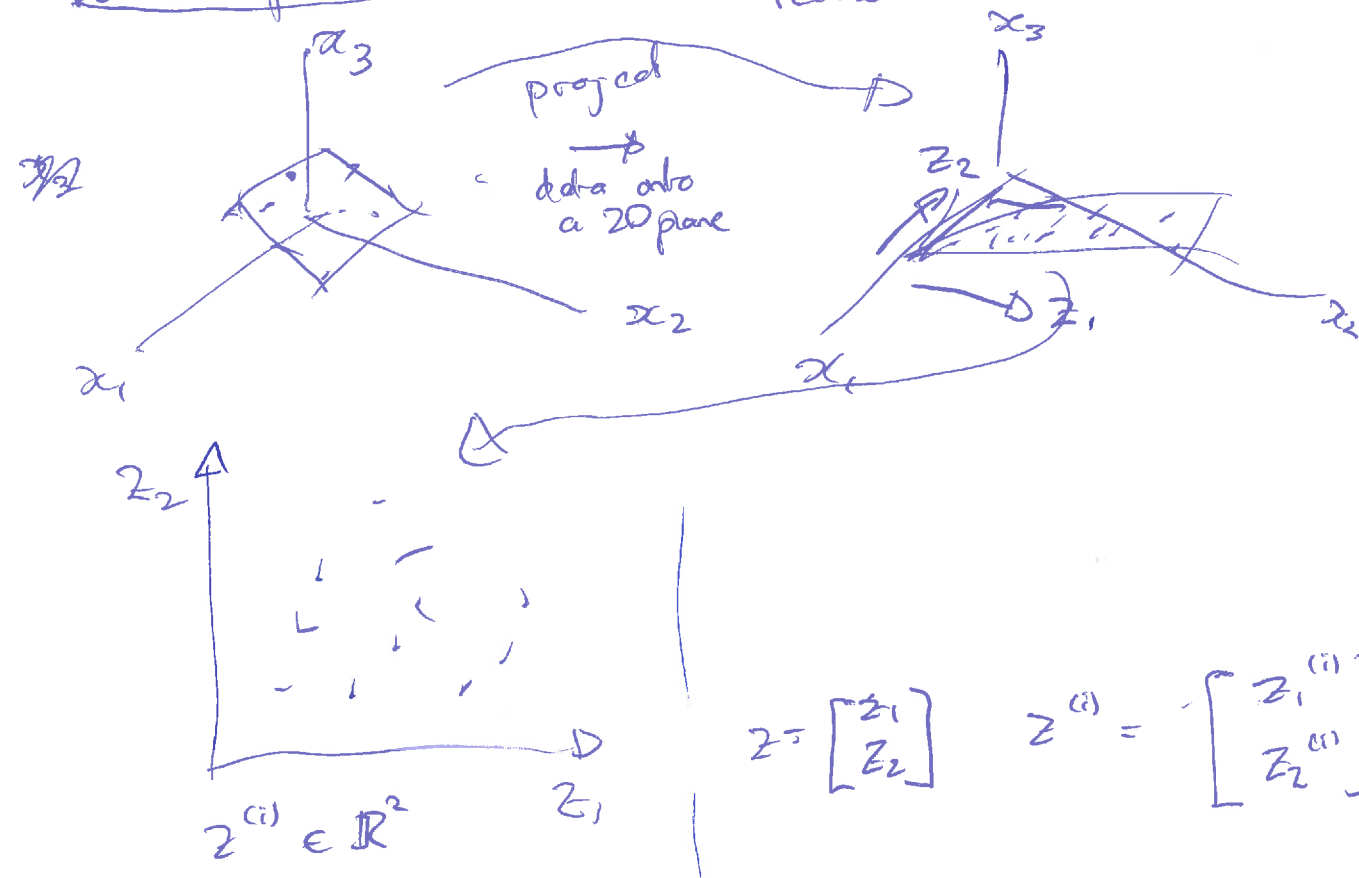 x₃
project
→
data onto
a 2D plane
x₃
z₂
x₂
x₁
z₁
x₂
x₁
z₂
z₁
z⁽ⁱ⁾ ∈ ℝ²
z = [z₁ z₂]
z⁽ⁱ⁾ = [z₁⁽ⁱ⁾ z₂⁽ⁱ⁾]